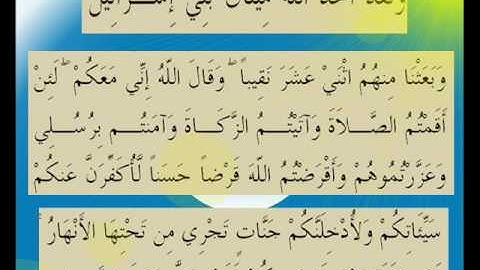 وَلَقَدْ أَخَذَ اللَّهُ مِيثَاقَ بَنِي إِسْرَائِيلَ
وَبَعَثْنَا مِنْهُمُ اثْنَيْ عَشَرَ نَقِيباً ۖ وَقَالَ اللَّهُ إِنِّي مَعَكُمْ ۖ لَئِنْ
أَقَمْتُمُ الصَّلَاةَ وَآتَيْتُمُ الزَّكَاةَ وَآمَنتُم بِرُسُلِي
وَعَزَّرْتُمُوهُمْ وَأَقْرَضْتُمُ اللَّهَ قَرْضاً حَسَناً لَّأُكَفِّرَنَّ عَنكُمْ
سَيِّئَاتِكُمْ وَلَأُدْخِلَنَّكُمْ جَنَّاتٍ تَجْرِي مِن تَحْتِهَا الْأَنْهَارُ ۚ